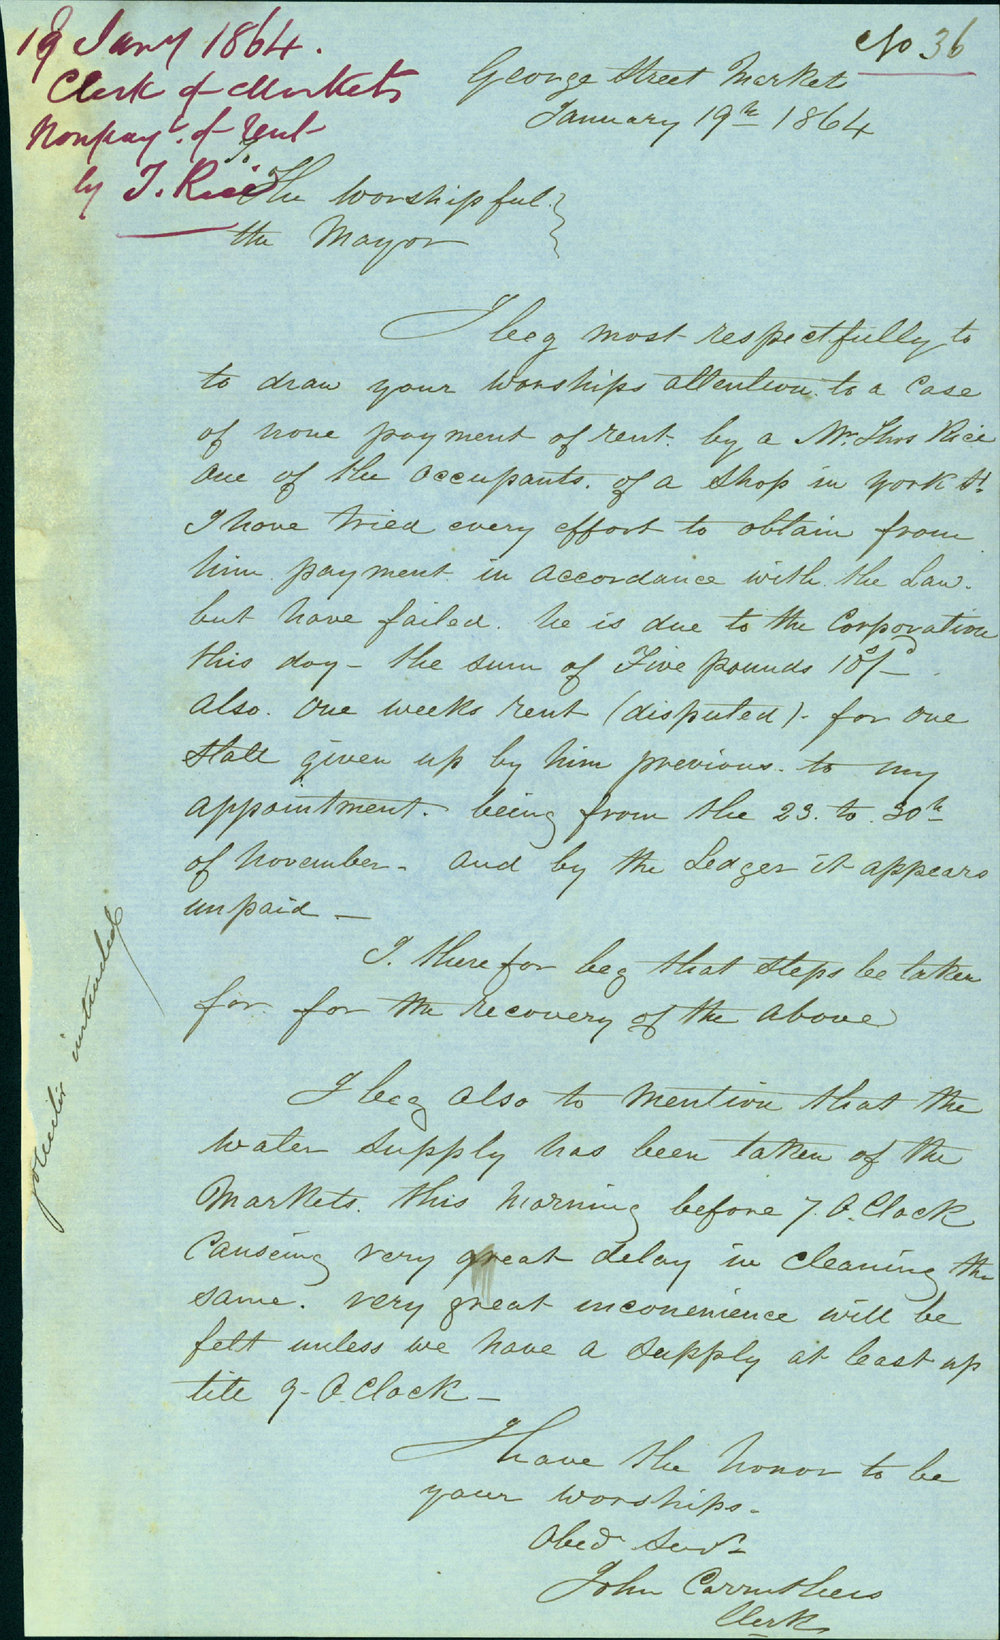 19 Jany 1864.
Clerk of Markets
Nonpayt. of Rent
by T. Rice
No 36
George Street Markets
January 19th 1864
The Worshipful
the Mayor
I beg most respectfully to
to draw your worships attention to a Case
of none payment of rent. by a Mr. Thos Rice
one of the occupants. of a Shop in York St.
I have tried every effort to obtain from
him payment in accordance with the Law.
but have failed. he is due to the Corporation
this day - the sum of Five pounds 10s/-
also. One weeks rent (disputed). for one
Stall given up by him previous. to my
appointment. being from the 23. to 30th
of November - and by the Ledger it appears
unpaid -
I. therefor beg that steps be taken
for. for the recovery of the above
I beg also to mention that the
water supply has been taken of the
Markets. this morning before 7. O.Clock
Causeing very great delay in cleaning the
same. very great inconenience will be
felt unless we have a supply at least up
till 9- O.Clock -
I have the honor to be
your worships.
Obed Servt
John Carruthers
Clerk
Solicitor instructed